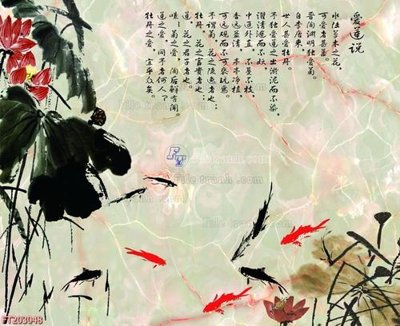 愛蓮说
水陸草木之花,
可愛者甚蕃
晉陶淵明獨愛菊。
自李唐来,
世人甚愛牡丹。
予獨愛蓮之出淤泥而不染,
濯清漣而不妖
中通外直,不蔓不枝
香遠益清,亭亭净植,
花之隱逸者也;
牡丹,花之富貴者也;
蓮,花之君子者也。
噫!菊之愛,陶后鲜有聞
蓮之愛,同予者何人?
牡丹之愛,宜乎眾矣。
Filetranh.com
FT203048